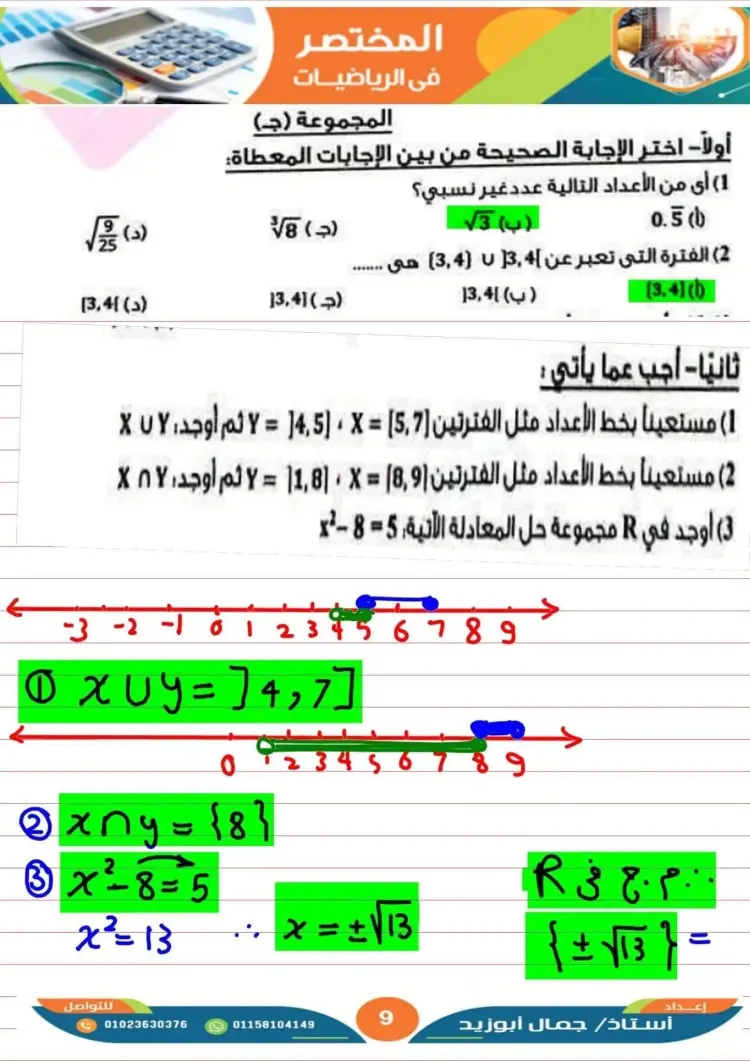 المختصر
فى الرياضيات
المجموعة (جـ)
أولاً- اختر الإجابة الصحيحة من بين الإجابات المعطاة:
1) أى من الأعداد التالية عدد غير نسبي؟
(أ) 0.5̅ (ب) √3 (جـ) ∛8 (د) √(9/25)
2) الفترة التى تعبر عن ]3,4[ ∪ {3,4} هى .......
(أ) [3,4] (ب) ]3,4[ (جـ) ]3,4] (د) [3,4[
ثانيًا- أجب عما يأتي:
1) مستعيناً بخط الأعداد مثل الفترتين X = [5,7] ، Y = ]4,5] ثم أوجد: X ∪ Y
2) مستعيناً بخط الأعداد مثل الفترتين X = [8,9] ، Y = ]1,8] ثم أوجد: X ∩ Y
3) أوجد في R مجموعة حل المعادلة الآتية: x² - 8 = 5
-3 -2 -1 0 1 2 3 4 5 6 7 8 9
① x ∪ y = ]4,7]
0 1 2 3 4 5 6 7 8 9
② x ∩ y = {8}
③ x² - 8 = 5
x² = 13 ∴ x = ±√13
∴ م.ح في R
= {±√13}
للتواصل
01023630376 01158104149
9
إعداد
أستاذ/ جمال أبوزيد